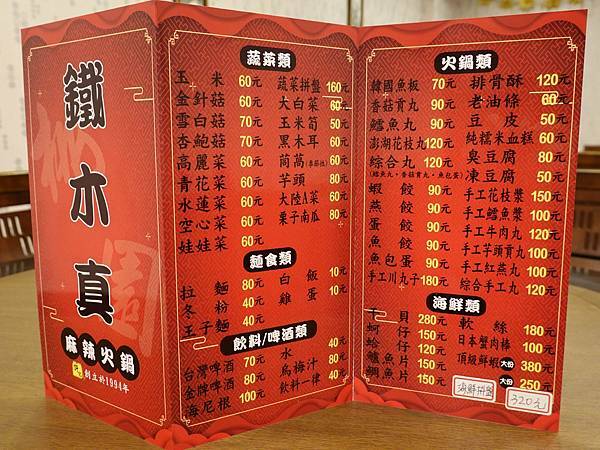 鐵木真
麻辣火鍋
創立於1994年
蔬菜類
玉米 60元
金針菇 60元
雪白菇 70元
杏鮑菇 70元
高麗菜 60元
青花菜 60元
水蓮菜 60元
空心菜 60元
娃娃菜 60元
蔬菜拼盤 160元
大白菜 60元
玉米筍 50元
黑木耳 60元
茼萵(季節性) 元
芋頭 80元
大陸A菜 60元
栗子南瓜 80元
麵食類
拉麵 80元
冬粉 40元
王子麵 40元
白飯 10元
雞蛋 10元
飲料/啤酒類
台灣啤酒 70元
金牌啤酒 80元
海尼根 100元
水 40元
烏梅汁 80元
飲料一律 40元
火鍋類
韓國魚板 70元
香菇貢丸 90元
鱈魚丸 90元
澎湖花枝丸 120元
綜合丸 120元
(鱈魚丸，香菇貢丸，魚包蛋)
蝦餃 90元
燕餃 90元
蛋餃 90元
魚餃 90元
魚包蛋 90元
手工川丸子 180元
排骨酥 120元
老油條 60元
豆皮 50元
純糯米血糕 60元
臭豆腐 80元
凍豆腐 50元
手工花枝漿 150元
手工鱈魚漿 100元
手工牛肉丸 120元
手工芋頭貢丸 100元
手工紅燕丸 100元
綜合手工丸 120元
海鮮類
干貝 280元
蚵仔 120元
蛤仔 120元
鱸魚片 150元
鯛魚片 150元
軟絲 180元
日本蟹肉棒 100元
頂級鮮蝦 大份 380元
大份 250元
海鮮拼盤 320元